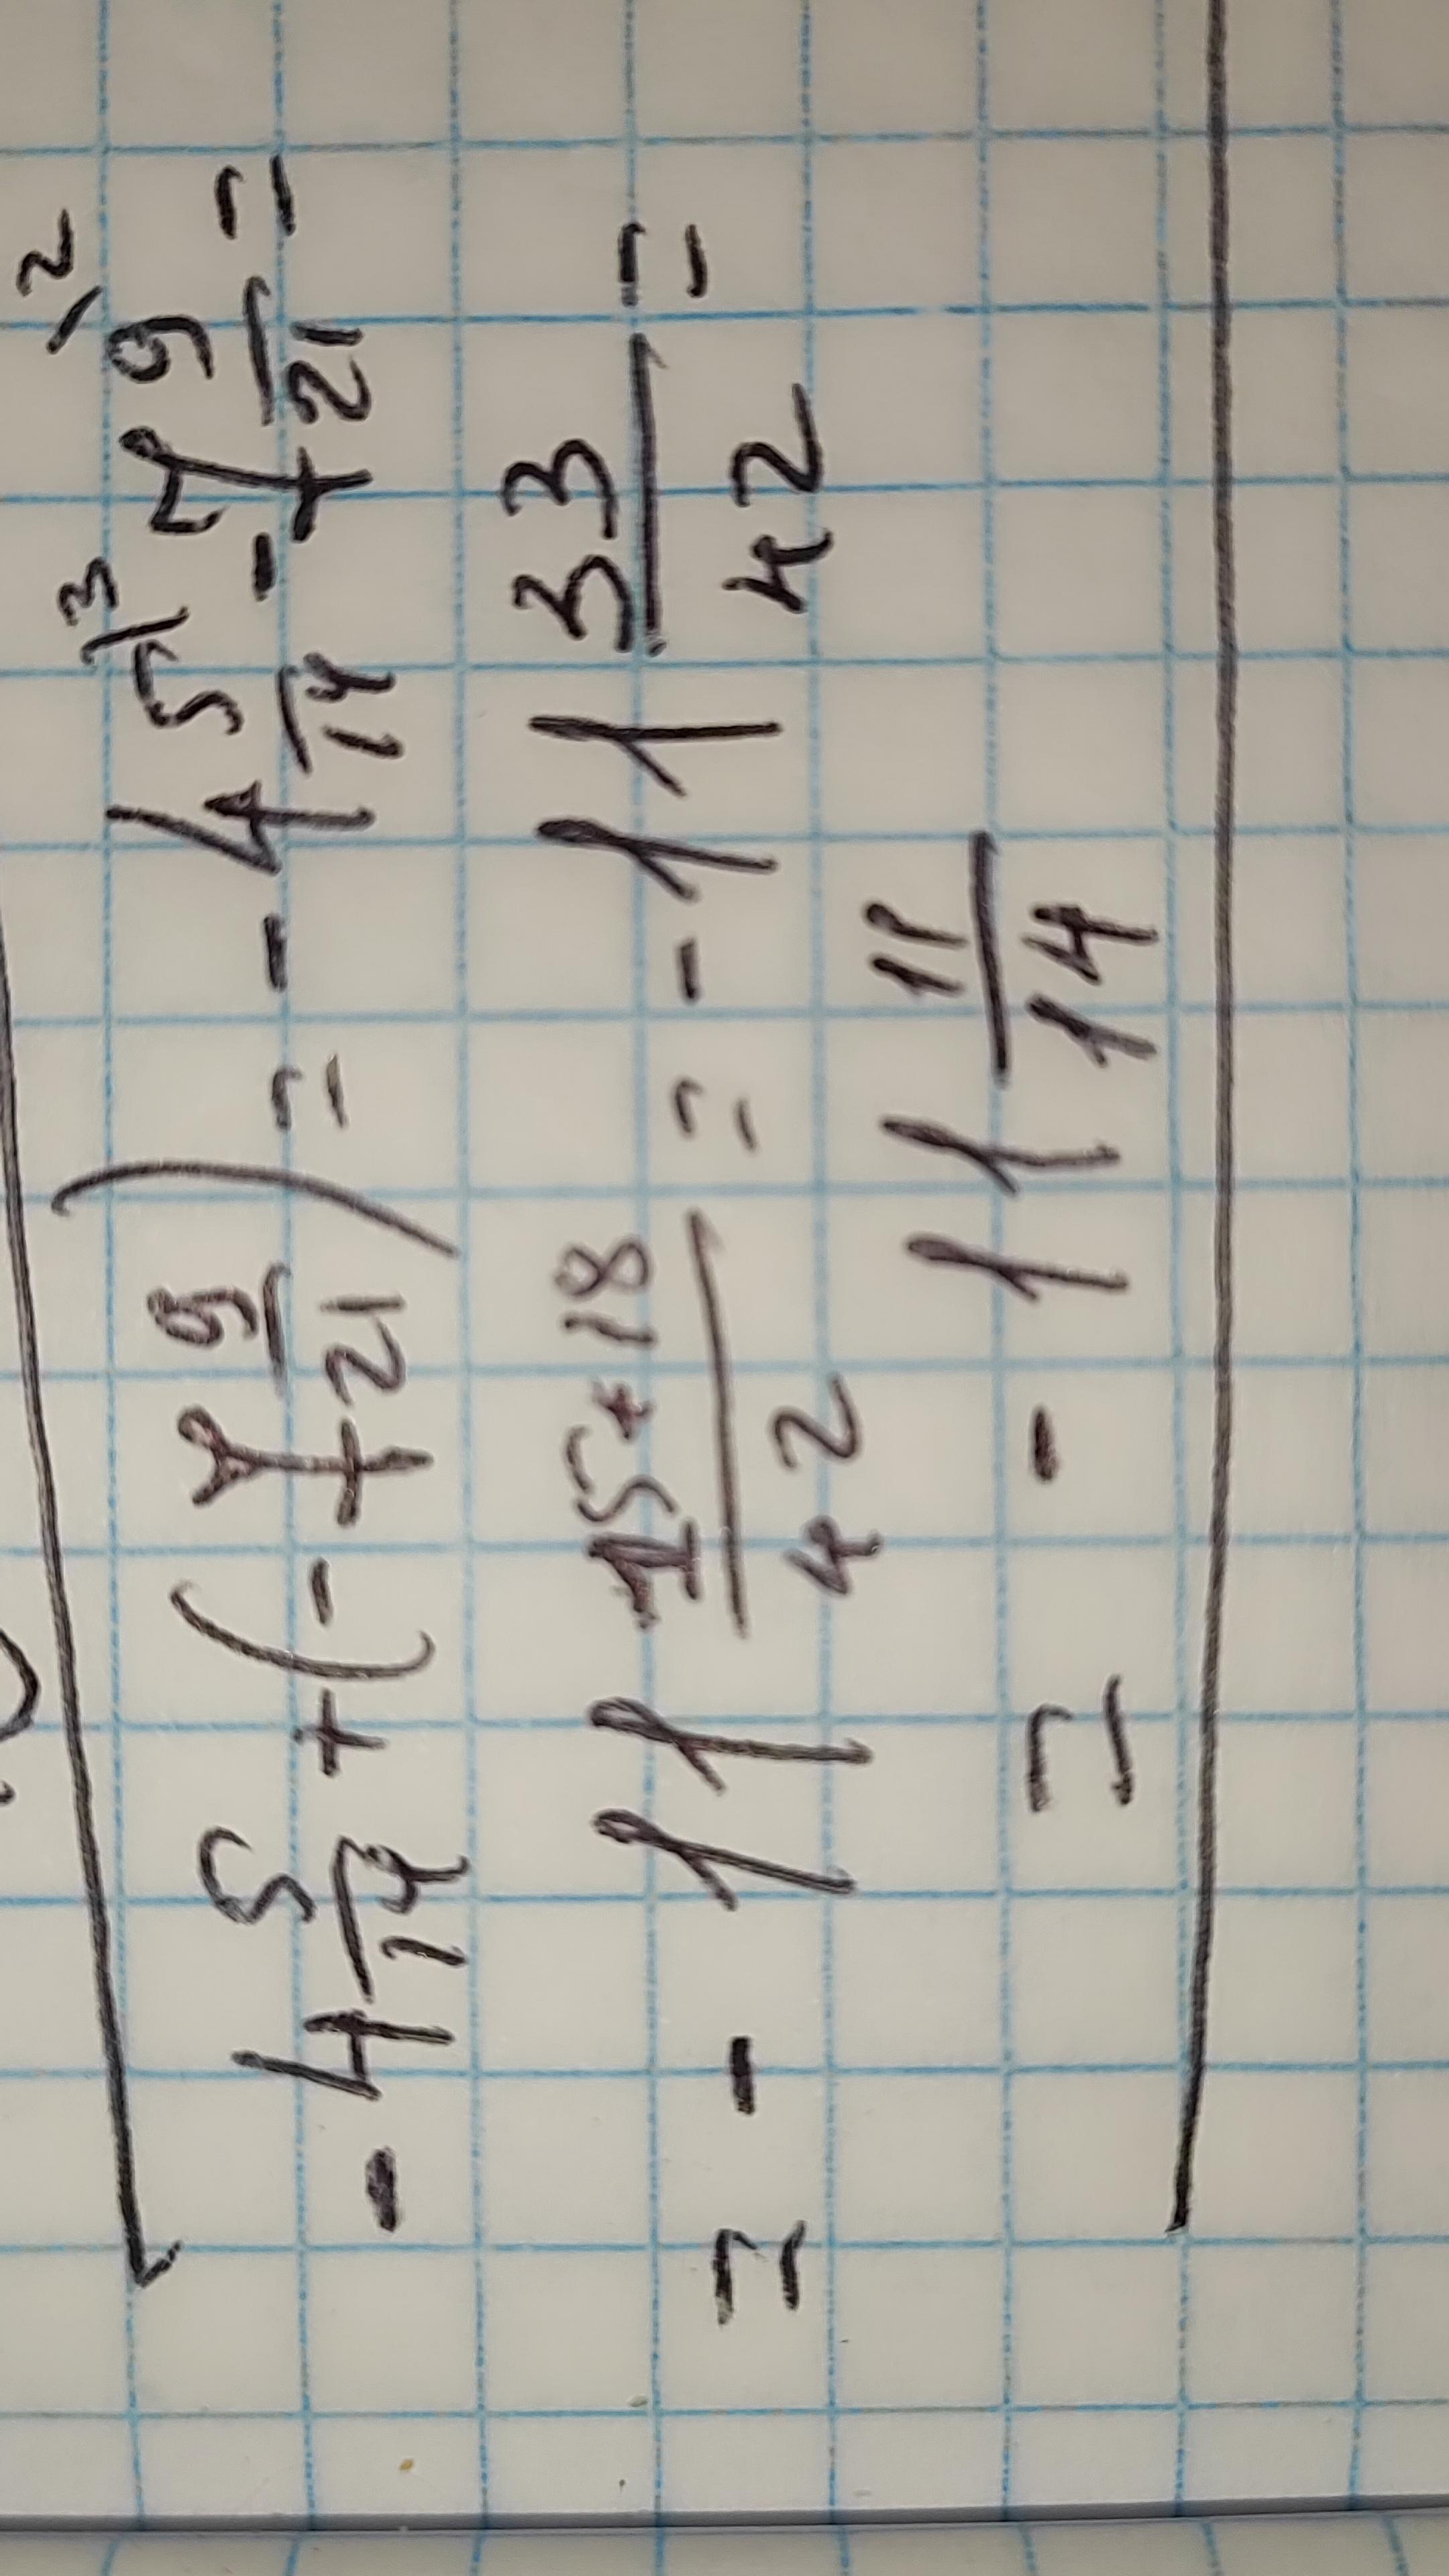 - 4 5/14 + (- 7 9/21) = - 4 5/14 \3 - 7 9/21 \2 =
= - 11 15+18/42 = - 11 33/42 =
= - 11 11/14